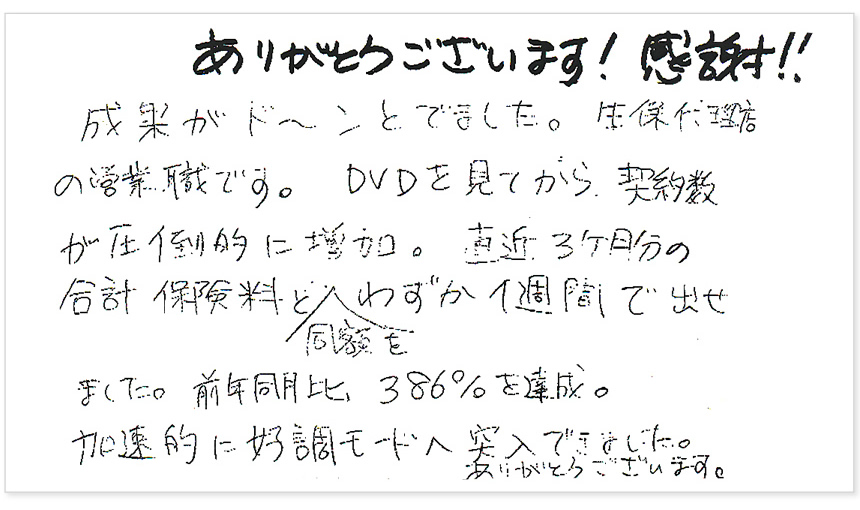 ありがとうございます! 感謝!!
成果がド〜ンとでました。生保代理店
の営業職です。 DVDを見てから、契約数
が圧倒的に増加。直近3ケ月分の
合計保険料と わずか1週間で出せ
同額を
ました。前年同月比、386%を達成。
加速的に好調モードへ突入できました。
ありがとうございます。